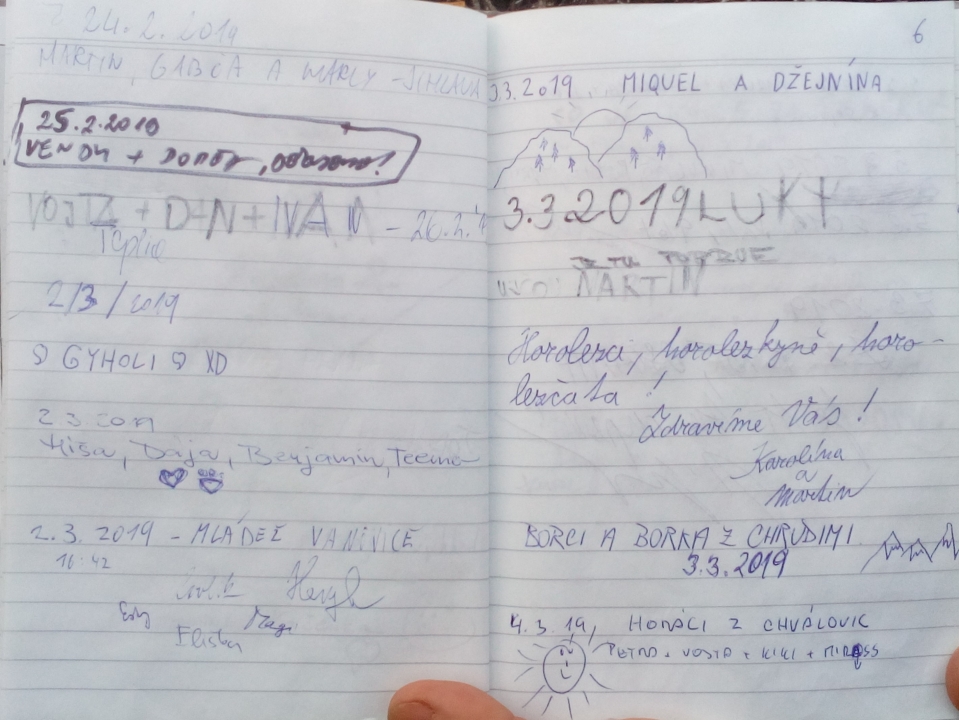 24.2.2019
MARTIN, GABČA A MARLY - JIHLAVA
25.2.2019
VENDY + DOMČA,
VOJTA + DAN + IVAN - 26.2.19
Teplice
2/3/2019
GYHOLI XD
2.3.2019
Míša, Dája, Benjamin, Teemo
2.3.2019 - MLÁDEŽ VANIVICE
16:42
Eliška
Magi
6
3.3.2019 MIQUEL A DŽEJNÍNA
3.3.2019 LUKY
JE TU POPRVE
MARTIN
Horolezci, horolezkyně, horo-
lezčata!
Zdravíme Vás!
Karolína
a
Martin
BORCI A BORKA Z CHRUDIMI
3.3.2019
4.3.19, HORÁCI Z CHVALOVIC
PETRA + VOJTA + KIKI +